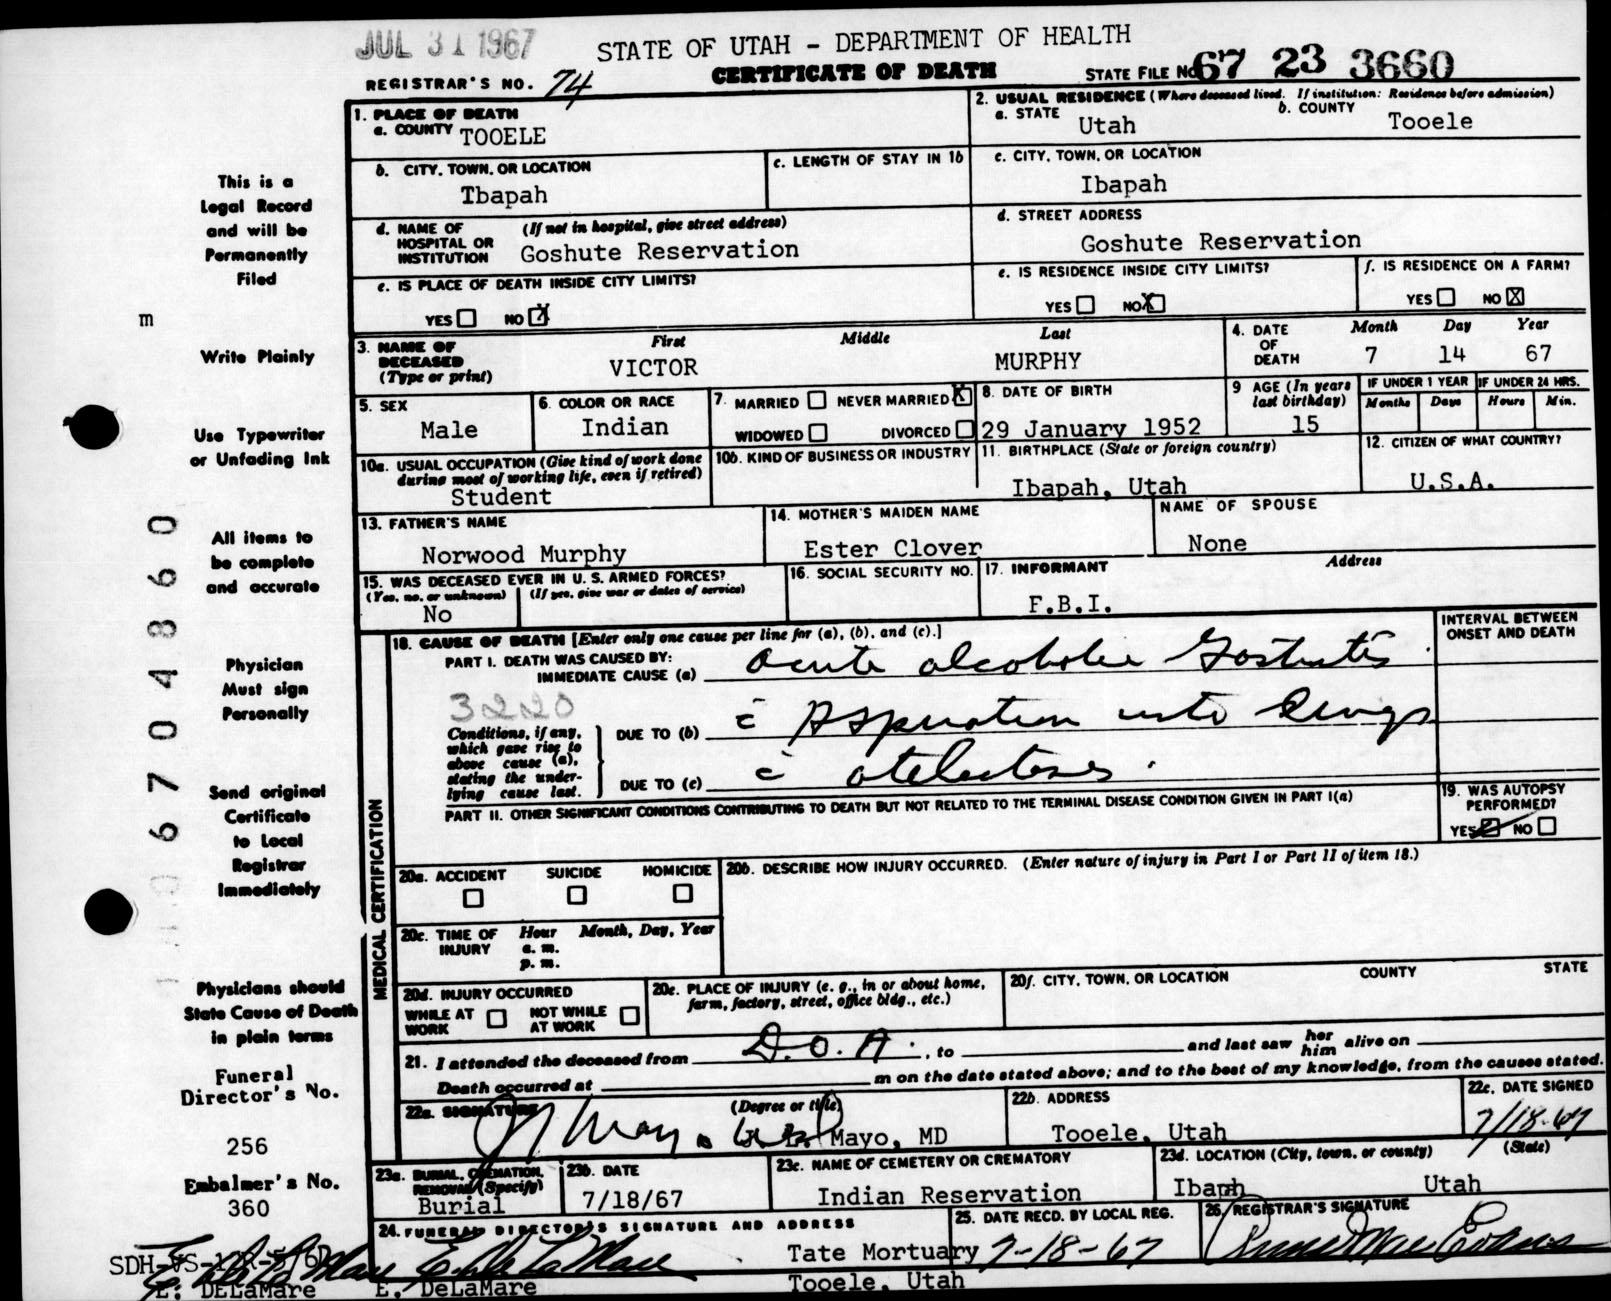 JUL 31 1967
STATE OF UTAH - DEPARTMENT OF HEALTH
CERTIFICATE OF DEATH
REGISTRAR'S NO. 74
STATE FILE NO. 67 23 3660
1. PLACE OF DEATH
a. COUNTY TOOELE
2. USUAL RESIDENCE (Where deceased lived. If institution: Residence before admission)
a. STATE Utah
b. COUNTY Tooele
b. CITY, TOWN, OR LOCATION
Ibapah
c. LENGTH OF STAY IN 1b
c. CITY, TOWN, OR LOCATION
Ibapah
d. NAME OF HOSPITAL OR INSTITUTION (If not in hospital, give street address)
Goshute Reservation
d. STREET ADDRESS
Goshute Reservation
e. IS PLACE OF DEATH INSIDE CITY LIMITS?
YES NO X
e. IS RESIDENCE INSIDE CITY LIMITS?
YES NO X
f. IS RESIDENCE ON A FARM?
YES NO X
3. NAME OF DECEASED (Type or print)
First Middle Last
VICTOR MURPHY
4. DATE OF DEATH
Month Day Year
7 14 67
5. SEX
Male
6. COLOR OR RACE
Indian
7. MARRIED NEVER MARRIED X
WIDOWED DIVORCED
8. DATE OF BIRTH
29 January 1952
9 AGE (In years last birthday)
15
IF UNDER 1 YEAR
Months Days
IF UNDER 24 HRS.
Hours Min.
10a. USUAL OCCUPATION (Give kind of work done during most of working life, even if retired)
Student
10b. KIND OF BUSINESS OR INDUSTRY
11. BIRTHPLACE (State or foreign country)
Ibapah, Utah
12. CITIZEN OF WHAT COUNTRY?
U.S.A.
13. FATHER'S NAME
Norwood Murphy
14. MOTHER'S MAIDEN NAME
Ester Clover
NAME OF SPOUSE
None
15. WAS DECEASED EVER IN U. S. ARMED FORCES?
(Yes, no, or unknown) (If yes, give war or dates of service)
No
16. SOCIAL SECURITY NO.
17. INFORMANT Address
F.B.I.
MEDICAL CERTIFICATION
18. CAUSE OF DEATH [Enter only one cause per line for (a), (b), and (c).]
INTERVAL BETWEEN ONSET AND DEATH
PART I. DEATH WAS CAUSED BY:
IMMEDIATE CAUSE (a) Acute alcoholic Gastritis
3220
Conditions, if any, which gave rise to above cause (a), stating the underlying cause last.
DUE TO (b) c̄ Aspiration into lungs
DUE TO (c) c̄ atelectasis.
PART II. OTHER SIGNIFICANT CONDITIONS CONTRIBUTING TO DEATH BUT NOT RELATED TO THE TERMINAL DISEASE CONDITION GIVEN IN PART I(a)
19. WAS AUTOPSY PERFORMED?
YES NO
20a. ACCIDENT SUICIDE HOMICIDE
20b. DESCRIBE HOW INJURY OCCURRED. (Enter nature of injury in Part I or Part II of item 18.)
20c. TIME OF INJURY Hour Month, Day, Year
a. m.
p. m.
20d. INJURY OCCURRED
WHILE AT WORK NOT WHILE AT WORK
20e. PLACE OF INJURY (e. g., in or about home, farm, factory, street, office bldg., etc.)
20f. CITY, TOWN, OR LOCATION COUNTY STATE
21. I attended the deceased from D.O.A., to and last saw her him alive on
Death occurred at m on the date stated above; and to the best of my knowledge, from the causes stated.
22a. SIGNATURE (Degree or title)
Mayo, MD
22b. ADDRESS
Tooele, Utah
22c. DATE SIGNED
7/18-67
23a. BURIAL, CREMATION, REMOVAL (Specify)
Burial
23b. DATE
7/18/67
23c. NAME OF CEMETERY OR CREMATORY
Indian Reservation
23d. LOCATION (City, town, or county) (State)
Ibaph Utah
24. FUNERAL DIRECTOR'S SIGNATURE AND ADDRESS
E. DeLaMare
E. DeLaMare
Tate Mortuary
Tooele, Utah
25. DATE RECD. BY LOCAL REG.
7-18-67
26. REGISTRAR'S SIGNATURE
This is a
Legal Record
and will be
Permanently
Filed
m
Write Plainly
Use Typewriter
or Unfading Ink
All items to
be complete
and accurate
Physician
Must sign
Personally
Send original
Certificate
to Local
Registrar
Immediately
Physicians should
State Cause of Death
in plain terms
Funeral
Director's No.
256
Embalmer's No.
360
E. DELaMare
6704860